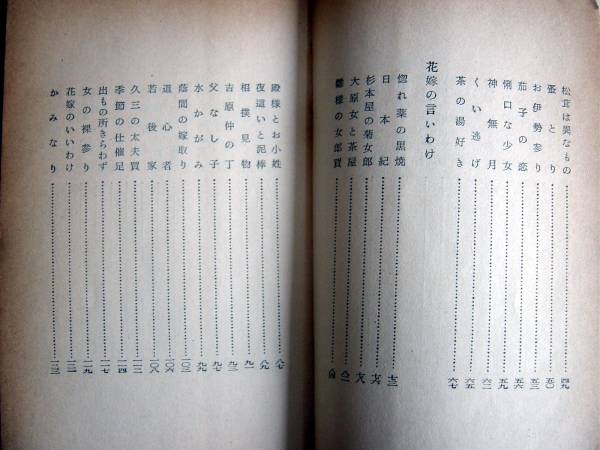 松茸は異なもの……四九
蚤とり……五〇
お伊勢参り……五三
茄子の恋……五六
悧口な少女……五九
神無月……六二
くい逃げ……六五
茶の湯好き……六七
花嫁の言いわけ
惚れ薬の黒焼……七三
日本紀……七六
杉本屋の菊女郎……七八
大原女と茶屋……八二
雛様の女郎買……八四
殿様とお小姓……八七
夜這いと泥棒……八九
相撲見物……九一
吉原仲の丁……九三
父なし子……九六
水かがみ……九九
蔭間の嫁取り……一〇三
道心者……一〇六
若後家……一〇八
久三の太夫買……一一二
季節の仕催足……一一四
出もの所きらわず……一一七
女の裸参り……一一九
花嫁のいいわけ……一二一
かみなり……一二三